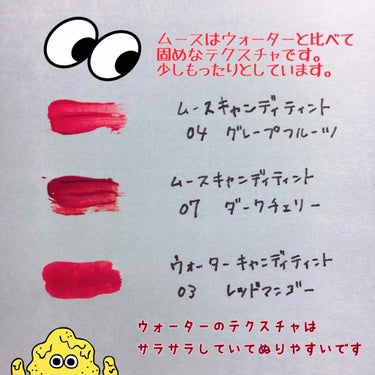 ムースはウォーターと比べて
固めなテクスチャです。
少しもったりとしています。
ムースキャンディティント
04 グレープフルーツ
ムースキャンディティント
07 ダークチェリー
ウォーターキャンディティント
03 レッドマンゴー
ウォーターのテクスチャは
サラサラしていてぬりやすいです